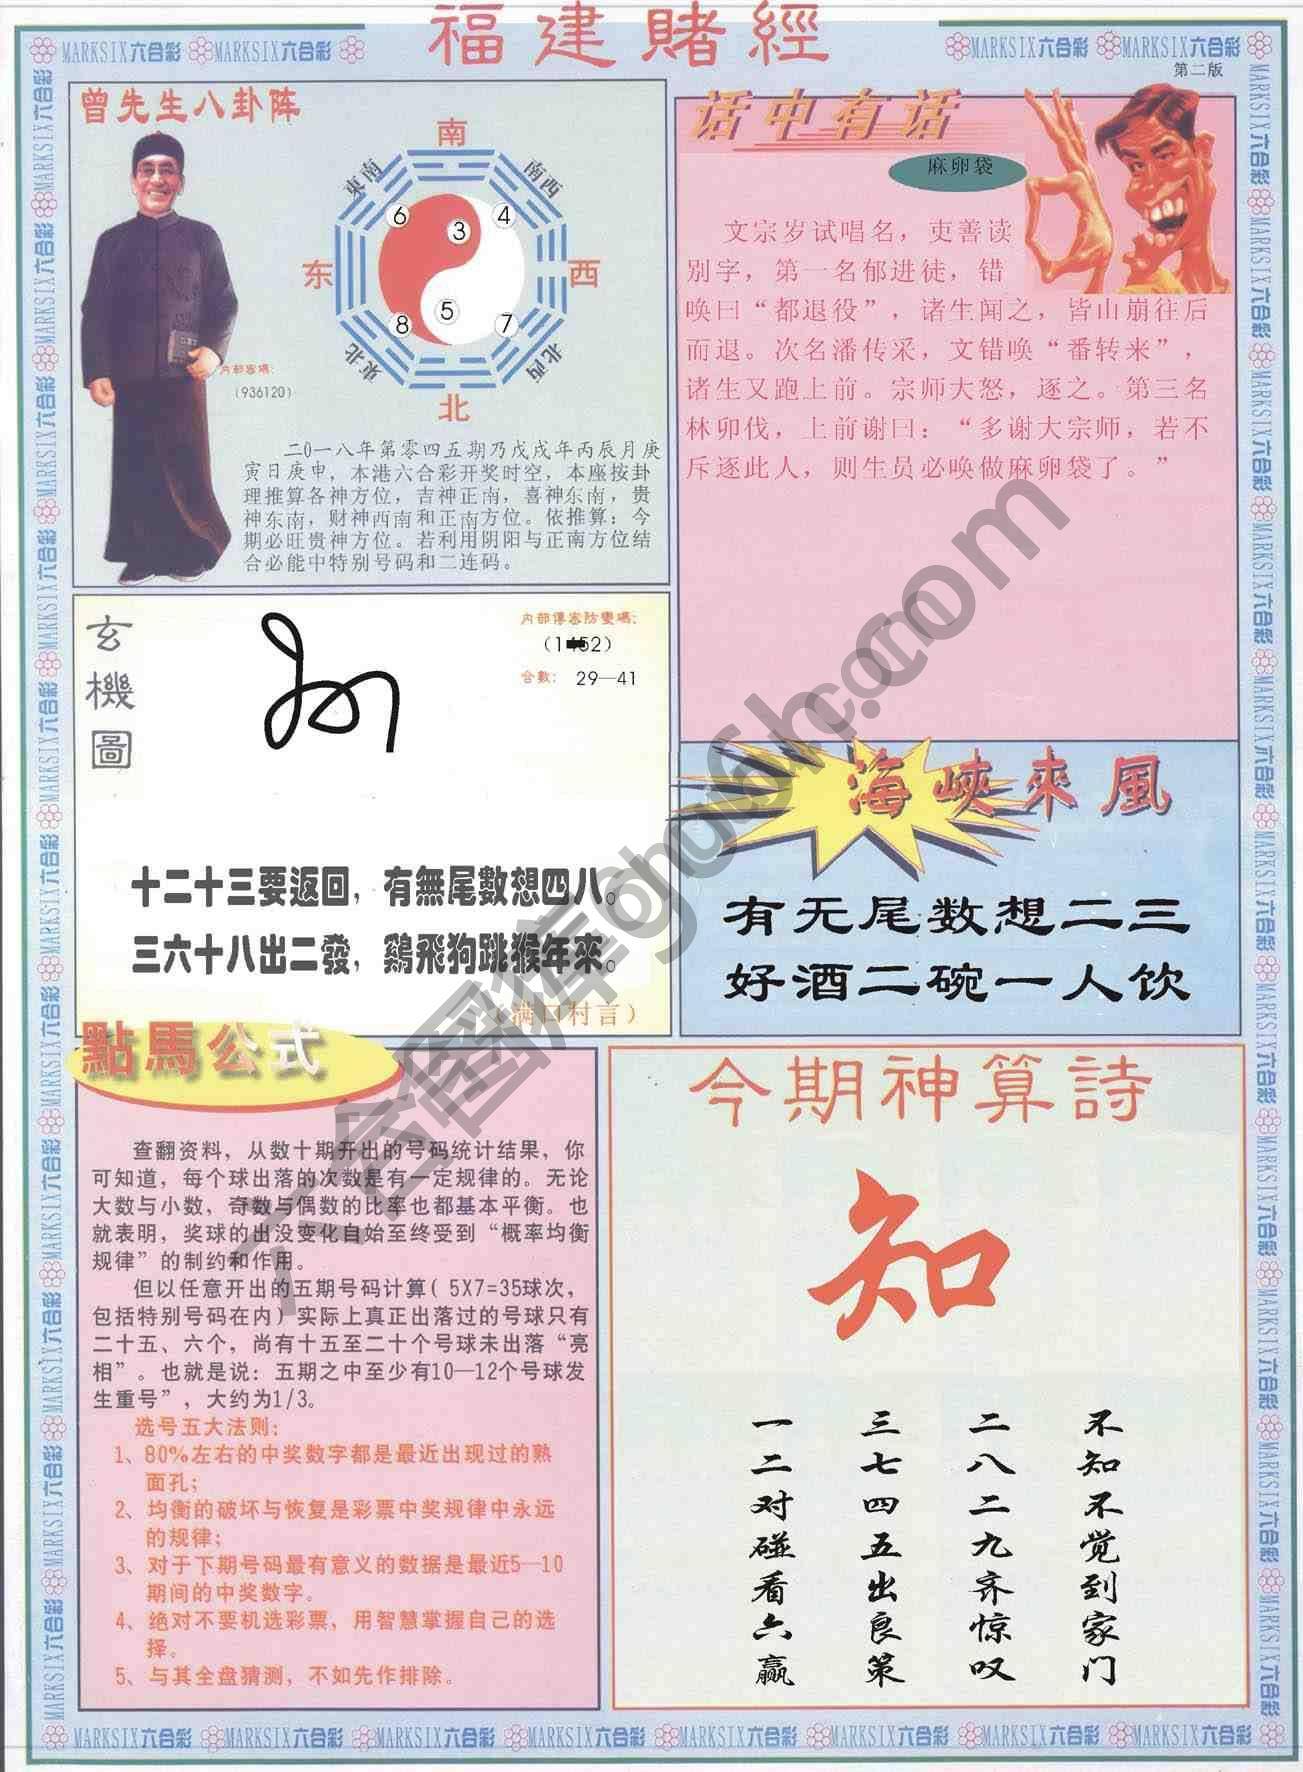 福建賭經
MARKSIX六合彩 MARKSIX六合彩
MARKSIX六合彩 MARKSIX六合彩
第二版
曾先生八卦阵
南
東南
南西
6
3
4
东
西
5
8
7
東北
北西
北
内部密碼：
（936120）
二0一八年第零四五期乃戊戌年丙辰月庚
寅日庚申，本港六合彩开奖时空，本座按卦
理推算各神方位，吉神正南，喜神东南，贵
神东南，财神西南和正南方位。依推算：今
期必旺贵神方位。若利用阴阳与正南方位结
合必能中特别号码和二连码。
话中有话
麻卵袋
文宗岁试唱名，吏善读
别字，第一名郁进徒，错
唤曰“都退役”，诸生闻之，皆山崩往后
而退。次名潘传采，文错唤“番转来”，
诸生又跑上前。宗师大怒，逐之。第三名
林卯伐，上前谢曰：“多谢大宗师，若不
斥逐此人，则生员必唤做麻卵袋了。”
玄機圖
内部傳密防變碼：
合數： 29—41
十二十三要返回，有無尾數想四八。
三六十八出二發，鷄飛狗跳猴年來。
（满口村言）
海峽來風
有无尾数想二三
好酒二碗一人饮
點馬公式
查翻资料，从数十期开出的号码统计结果，你
可知道，每个球出落的次数是有一定规律的。无论
大数与小数，奇数与偶数的比率也都基本平衡。也
就表明，奖球的出没变化自始至终受到“概率均衡
规律”的制约和作用。
但以任意开出的五期号码计算( 5X7=35球次，
包括特别号码在内）实际上真正出落过的号球只有
二十五、六个，尚有十五至二十个号球未出落“亮
相”。也就是说：五期之中至少有10—12个号球发
生重号”，大约为1/3。
选号五大法则：
1、80%左右的中奖数字都是最近出现过的熟
面孔；
2、均衡的破坏与恢复是彩票中奖规律中永远
的规律；
3、对于下期号码最有意义的数据是最近5—10
期间的中奖数字。
4、绝对不要机选彩票，用智慧掌握自己的选
择。
5、与其全盘猜测，不如先作排除。
今期神算詩
知
不知不觉到家门
二八二九齐惊叹
三七四五出良策
一二对碰看六赢
MARKSIX六合彩 MARKSIX六合彩 MARKSIX六合彩 MARKSIX六合彩 MARKSIX六合彩 MARKSIX六合彩 MARKSIX六合彩 MARKSIX六合彩